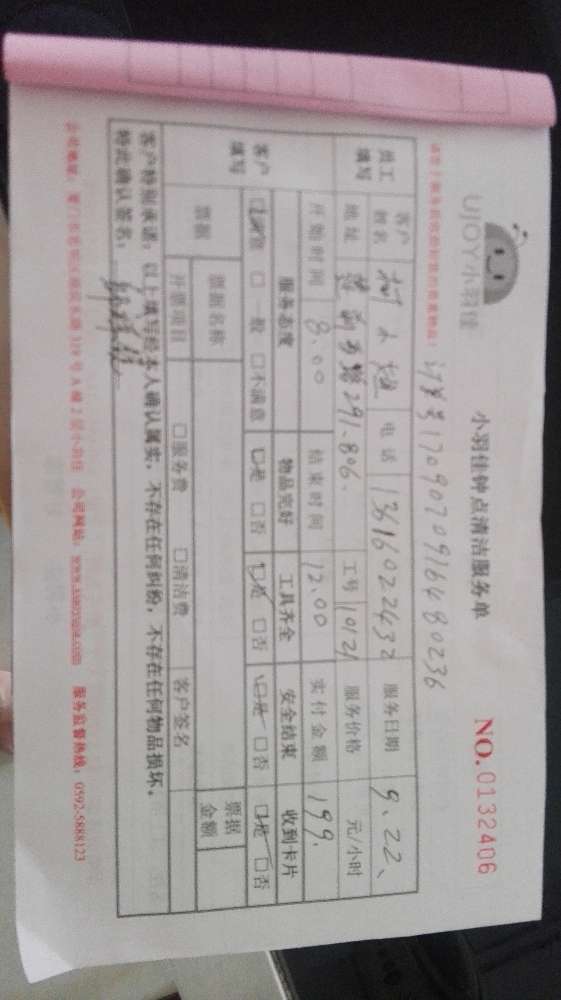 UJOY小羽佳
小羽佳钟点清洁服务单
NO.0132406
订单号1709070916480236
员工填写
客户姓名 柯 电话 13616022432 服务日期 9.22、
地址 291-806. 工号 10121 服务价格 元/小时
开始时间 8.00 结束时间 12.00 实付金额 199.
客户填写
服务态度 物品完好 工具齐全 安全结束 收到卡片
□满意 □一般 □不满意 □是 □否 □是 □否 □是 □否 □是 □否
票据
票据名称 票据金额
开票项目 □服务费 □清洁费 客户签名
客户特别承诺：以上填写经本人确认属实，不存在任何纠纷，不存在任何物品损坏。
特此确认签名：
公司地址： 319号A幢2层小羽佳 公司网址：www.xiaoyujia.com 服务监督热线：0592-5888123